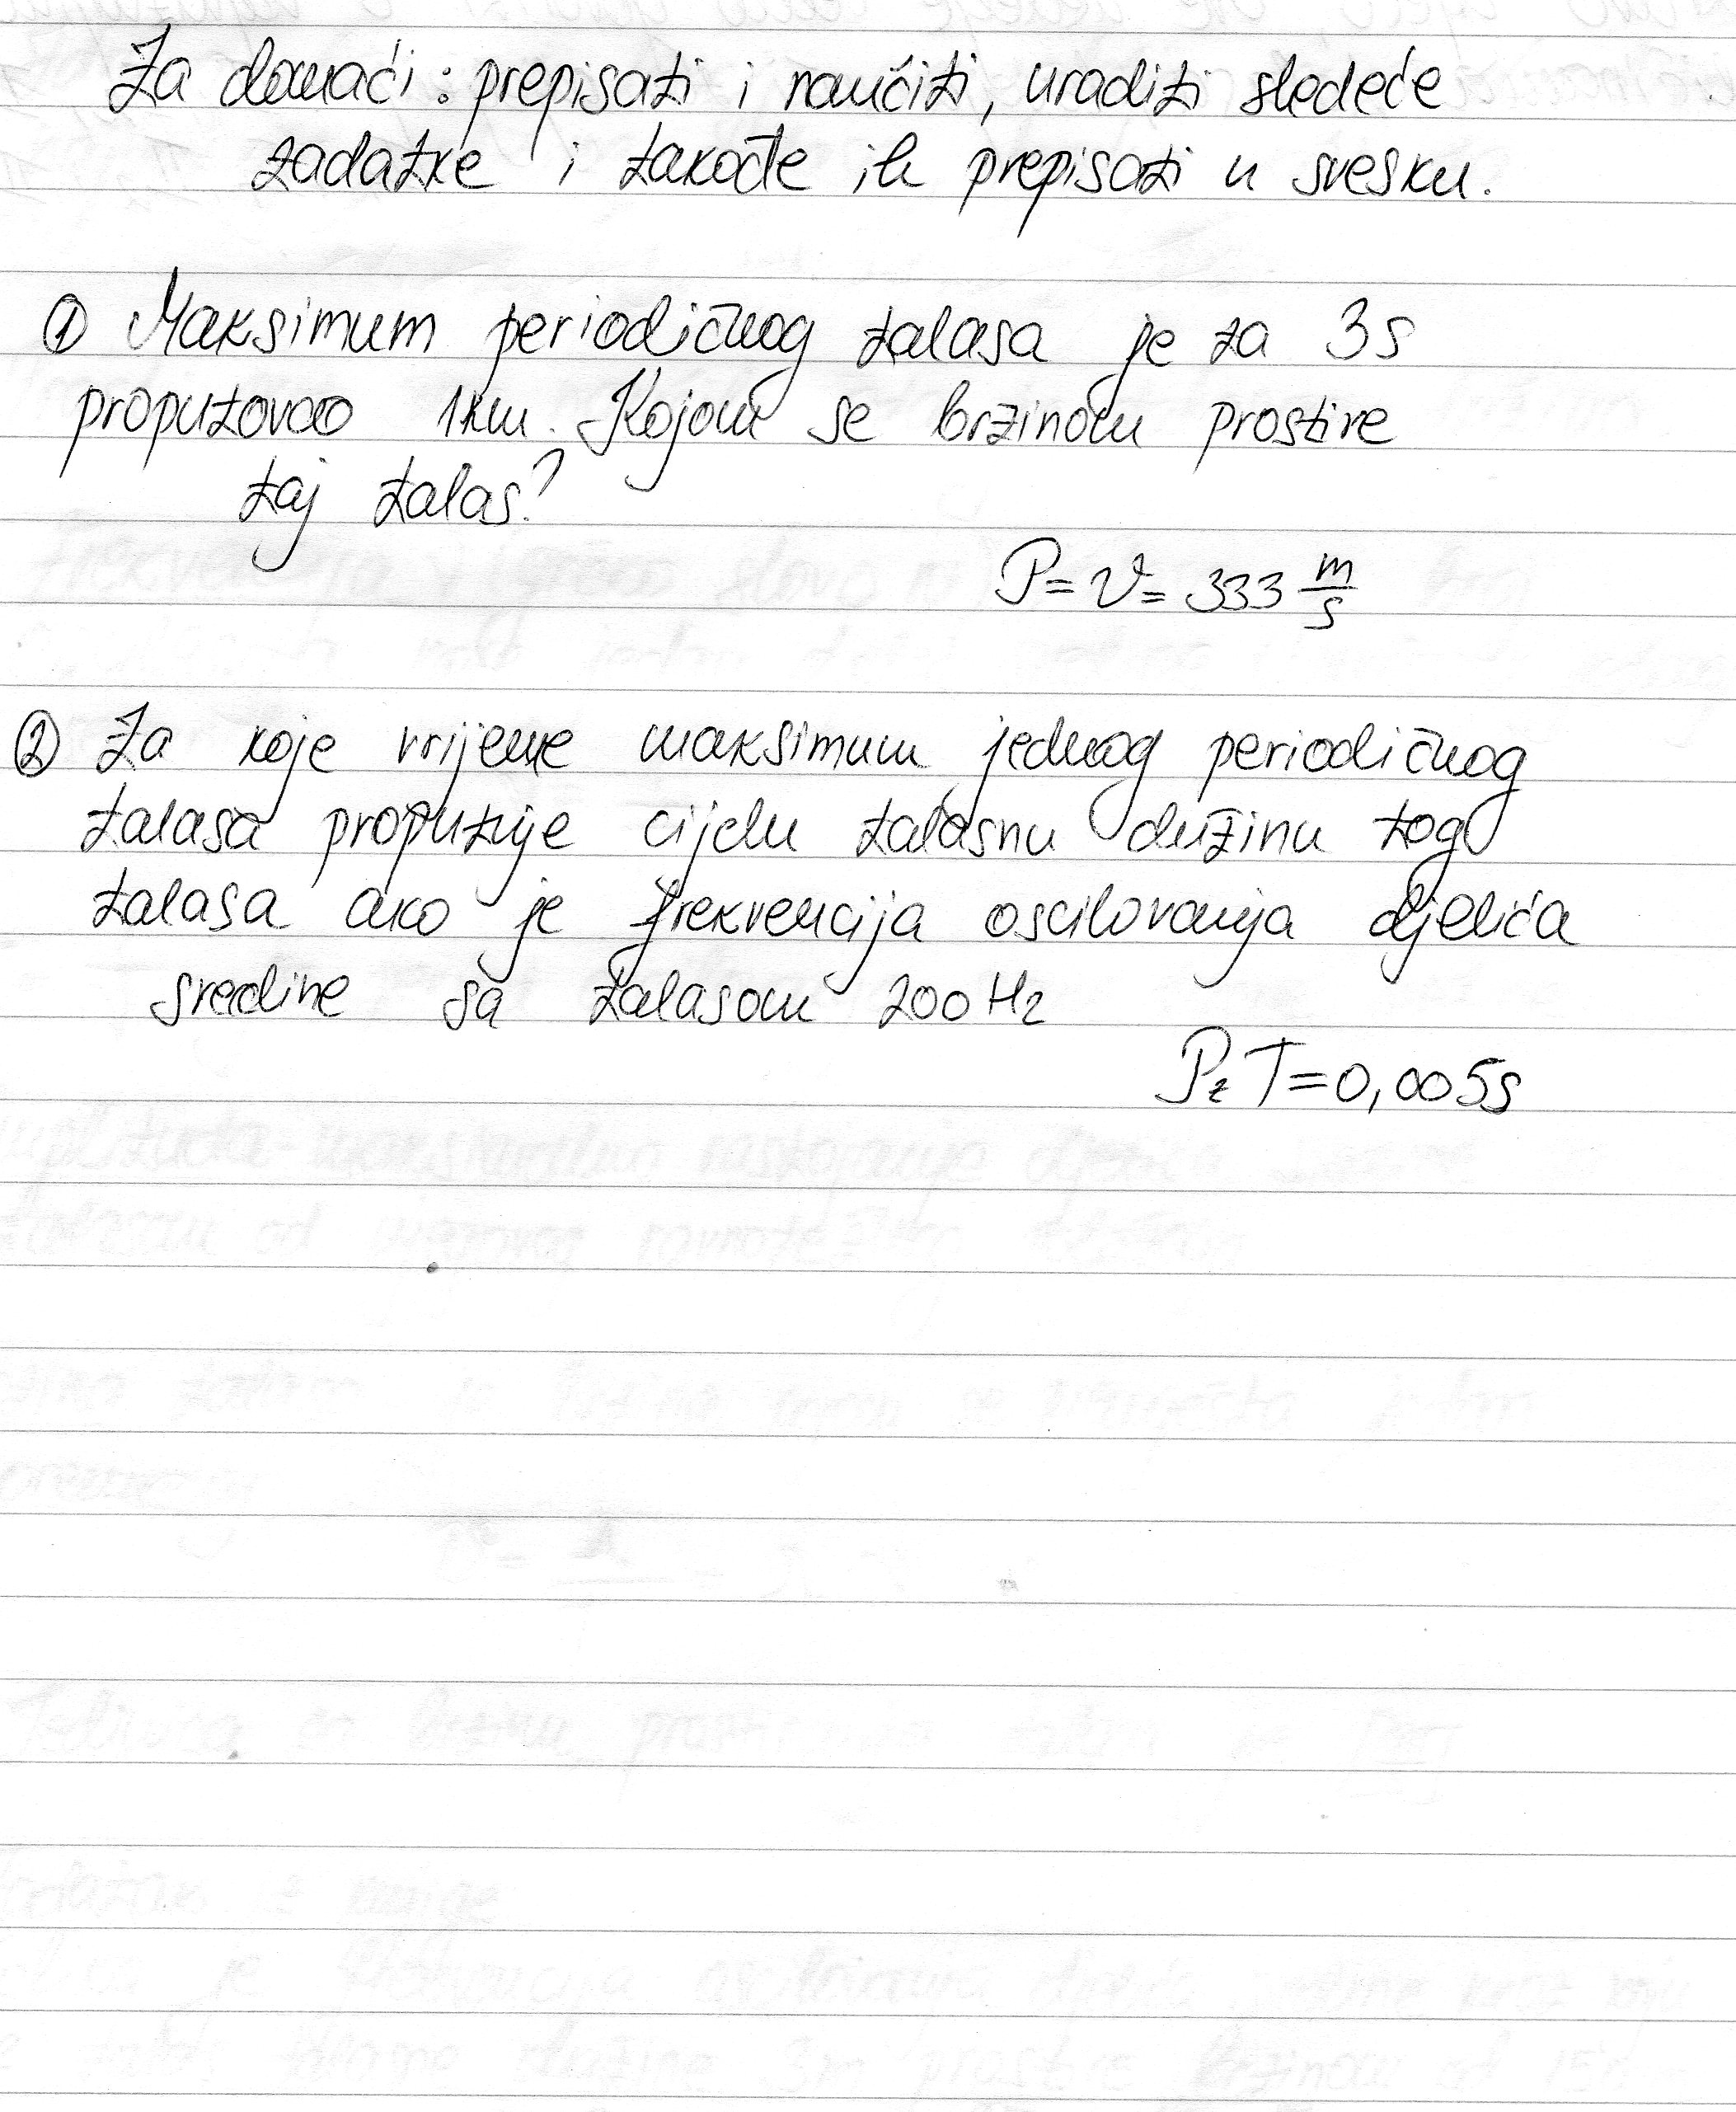 Za domaći: prepisati i naučiti, uraditi sledeće
zadatke i takođe ih prepisati u svesku.
① Maksimum periodičnog talasa je za 3s
proputovao 1km. Kojom se brzinom prostire
taj talas?
P= v= 333 m/s
② Za koje vrijeme maksimum jednog periodičnog
talasa proputuje cijelu talasnu dužinu tog
talasa ako je frekvencija oscilovanja djelića
sredine sa talasom 200 Hz
P: T=0,005s